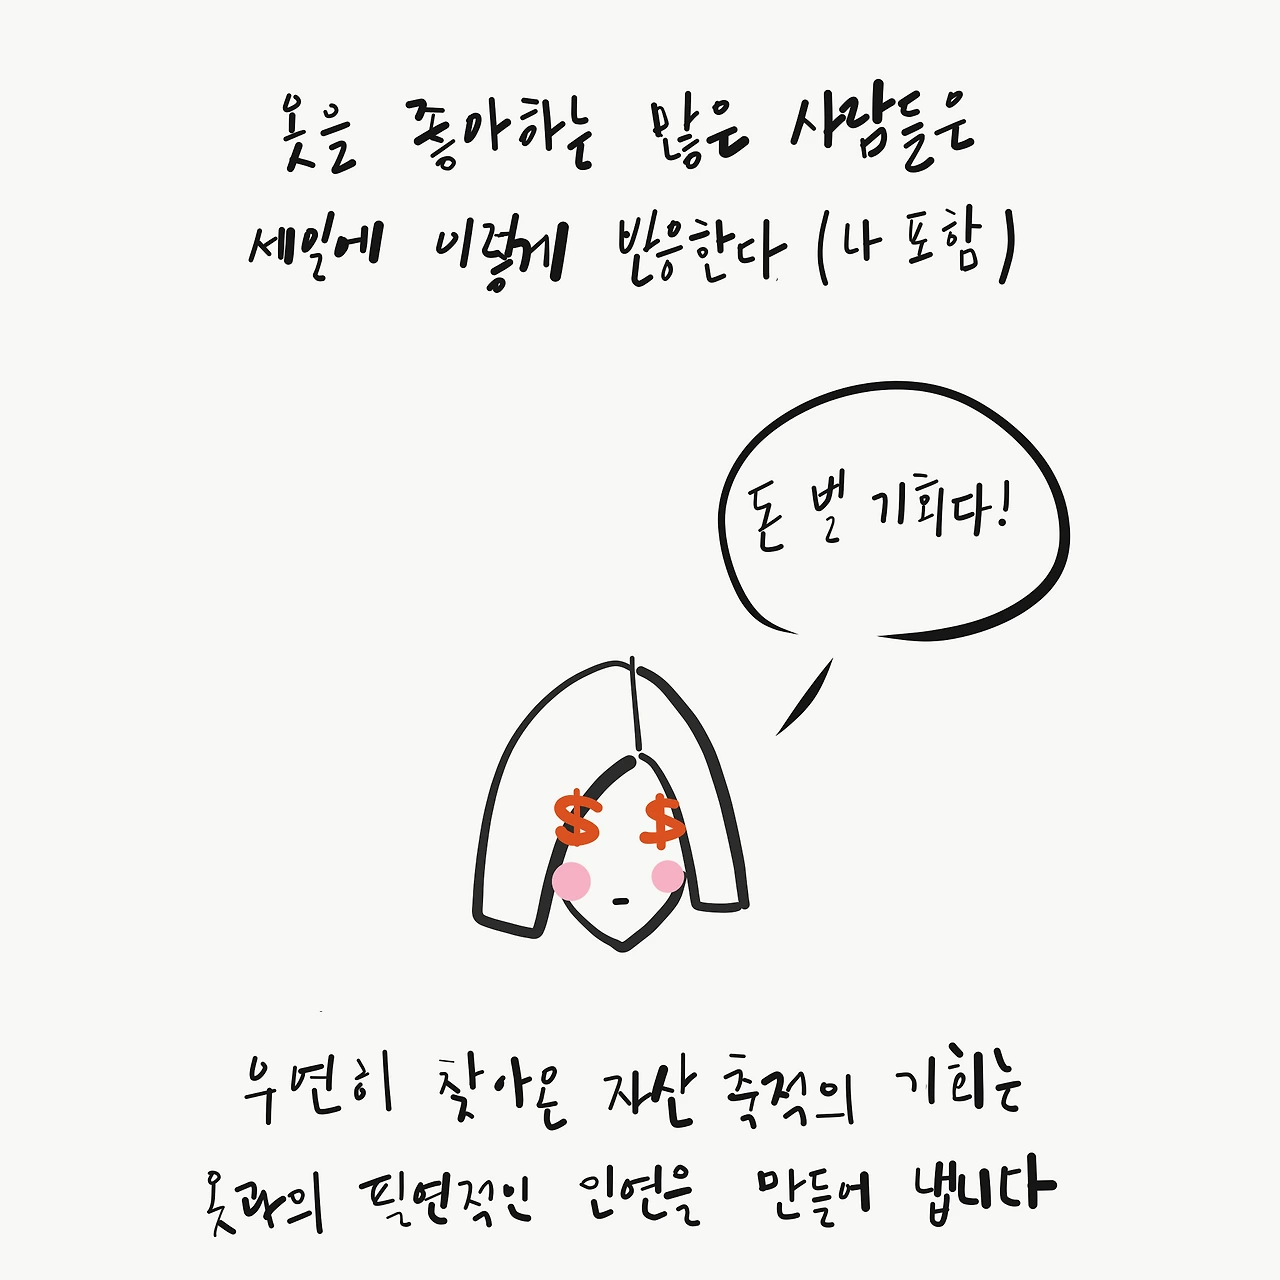 옷을 좋아하는 많은 사람들은
세일에 이렇게 반응한다 (나 포함)
돈 벌 기회다!
$ $
우연히 찾아온 자산 축적의 기회는
옷과의 필연적인 인연을 만들어 냅니다